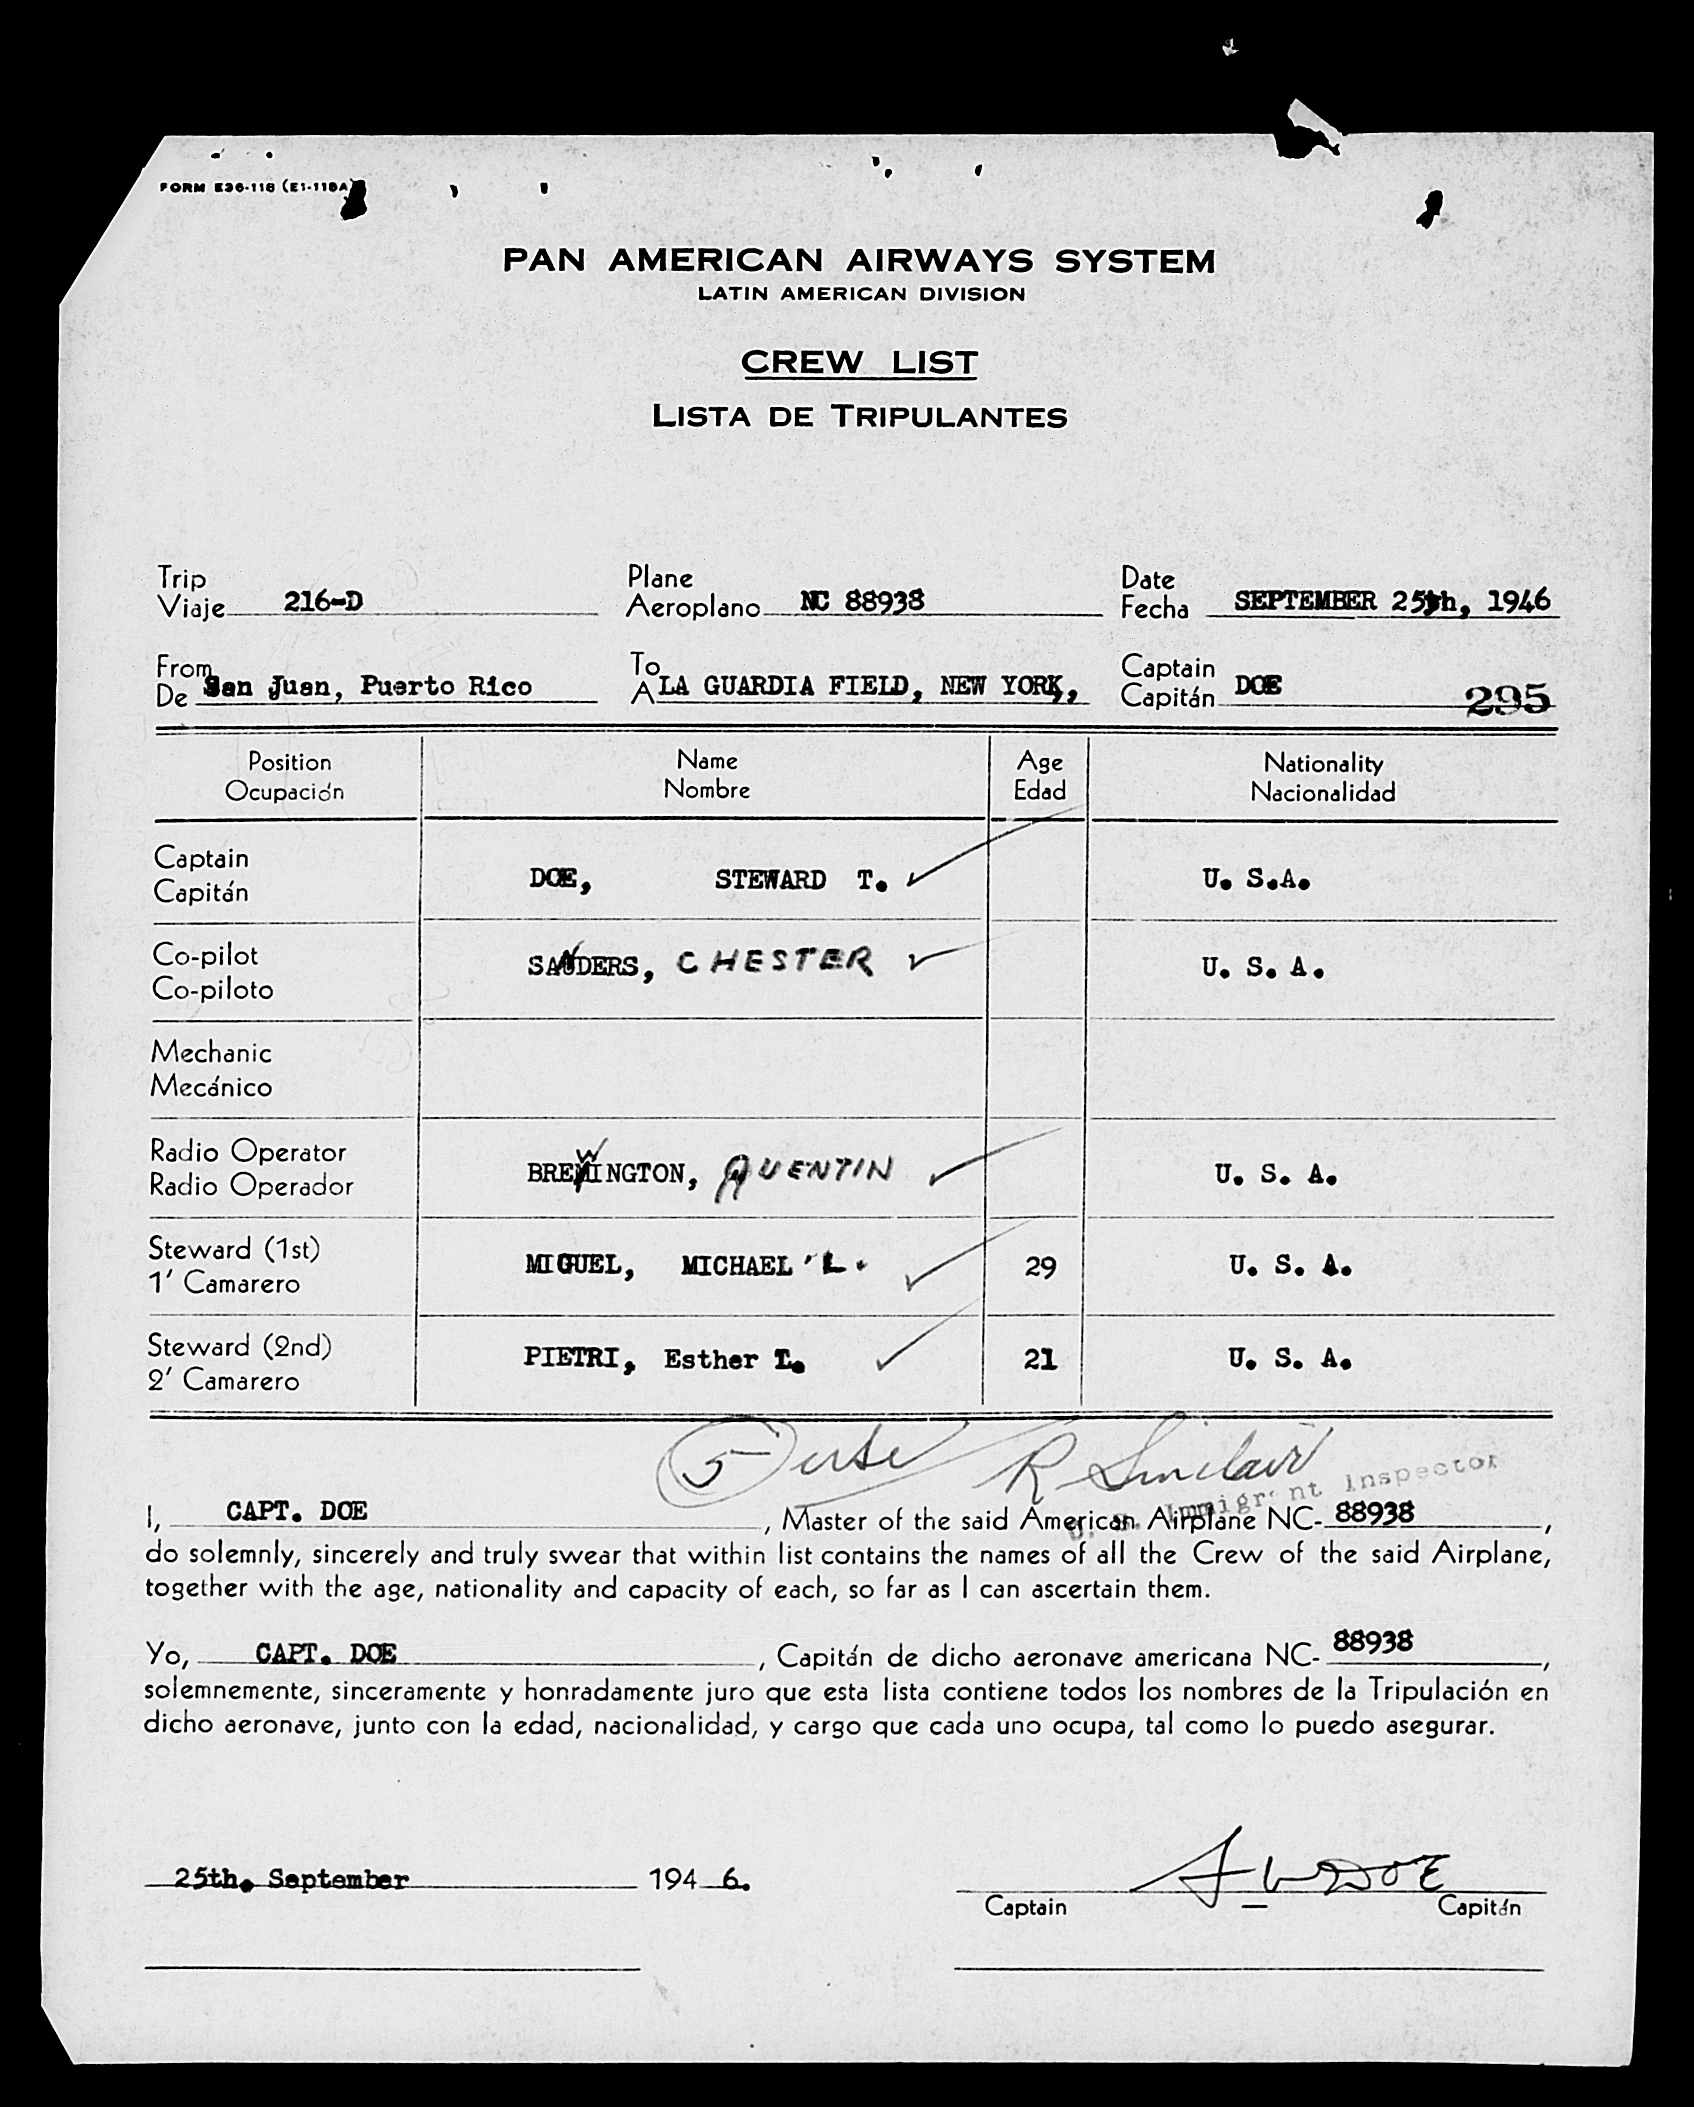 FORM E36-118 (E1-118A)
PAN AMERICAN AIRWAYS SYSTEM
LATIN AMERICAN DIVISION
CREW LIST
LISTA DE TRIPULANTES
Trip Plane Date
Viaje 216-D Aeroplano NC 88938 Fecha SEPTEMBER 25th, 1946
From To Captain
De San Juan, Puerto Rico A LA GUARDIA FIELD, NEW YORK, Capitán DOE 295
Position Name Age Nationality
Ocupación Nombre Edad Nacionalidad
Captain
Capitán DOE, STEWARD T. U. S.A.
Co-pilot
Co-piloto SANDERS, CHESTER U. S. A.
Mechanic
Mecánico
Radio Operator
Radio Operador BREWINGTON, QUENTIN U. S. A.
Steward (1st)
1' Camarero MIGUEL, MICHAEL L. 29 U. S. A.
Steward (2nd)
2' Camarero PIETRI, Esther 21 U. S. A.
5 R Sinclair
U. S. Immigrant Inspector
I, CAPT. DOE, Master of the said American Airplane NC- 88938,
do solemnly, sincerely and truly swear that within list contains the names of all the Crew of the said Airplane,
together with the age, nationality and capacity of each, so far as I can ascertain them.
Yo, CAPT. DOE, Capitán de dicho aeronave americana NC- 88938,
solemnemente, sinceramente y honradamente juro que esta lista contiene todos los nombres de la Tripulación en
dicho aeronave, junto con la edad, nacionalidad, y cargo que cada uno ocupa, tal como lo puedo asegurar.
25th. September 194 6. DOE
Captain Capitán